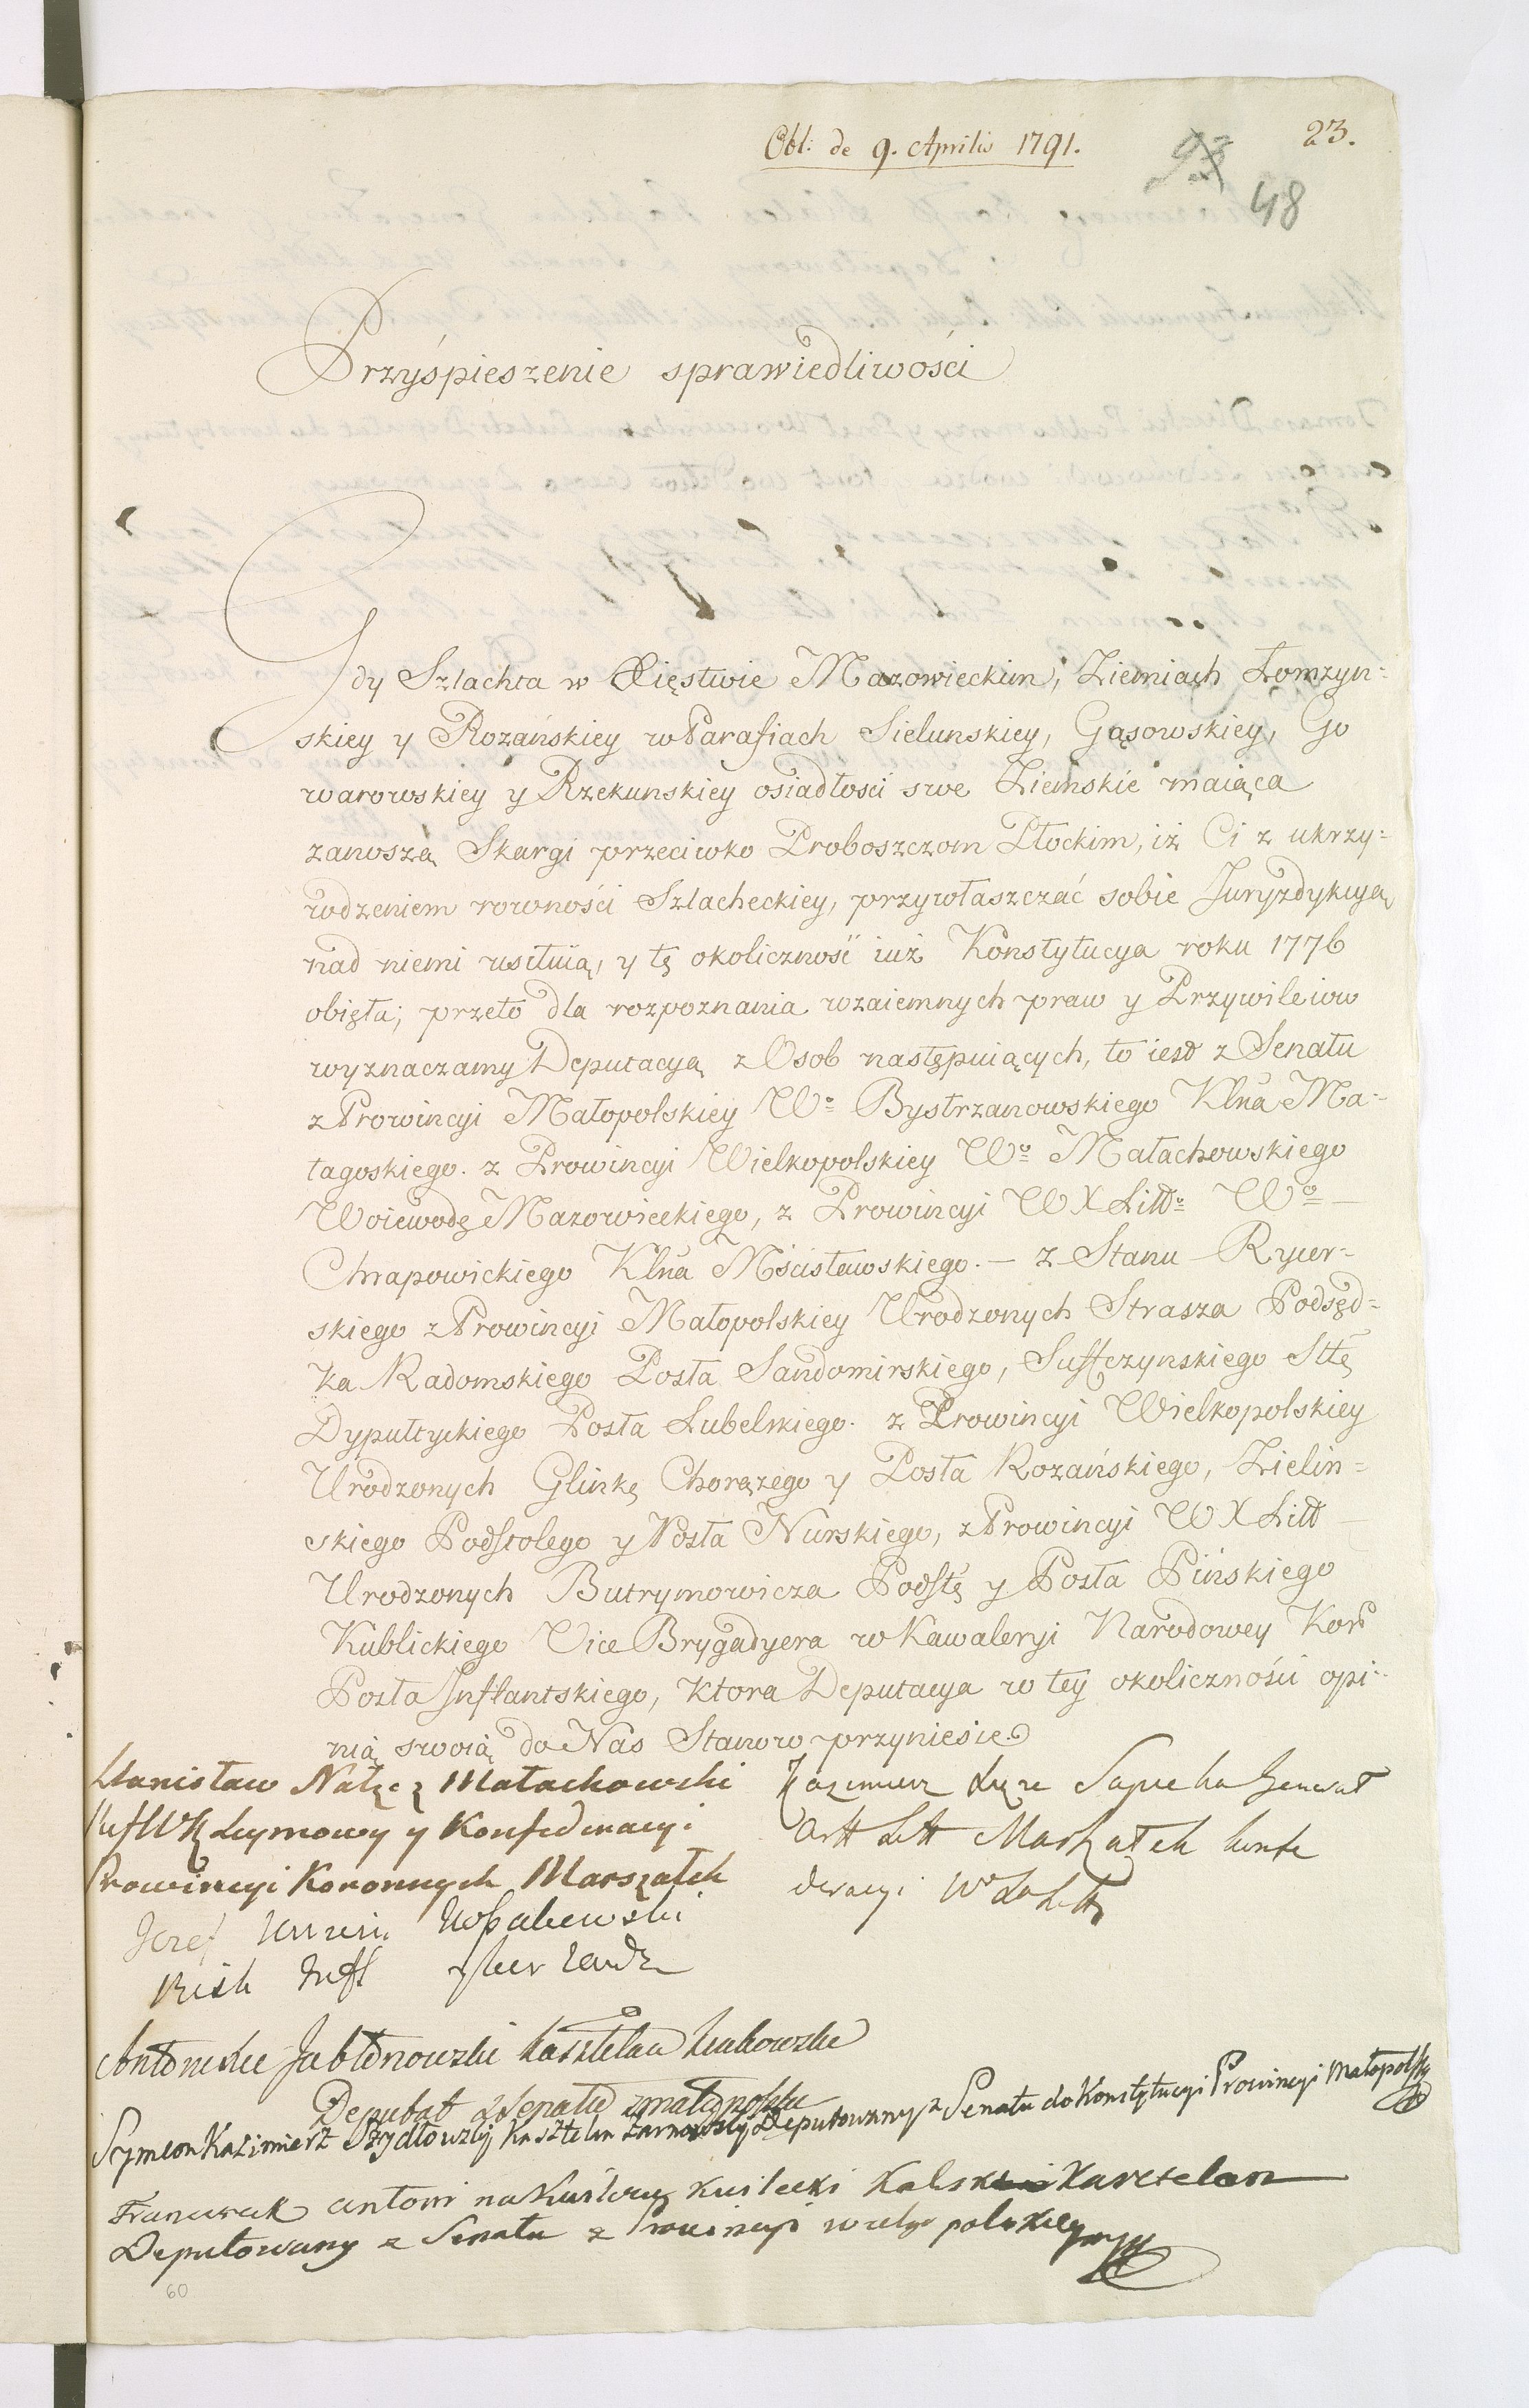 Obl: de 9. Aprilis 1791.
23.
93
48
Przyśpieszenie sprawiedliwości
Gdy Szlachta w Xięstwie Mazowieckim, Ziemiach Łomzyn=
skiey y Rozańskiey w Parafiach Sielunskiey, Gąsowskiey, Go
warowskiey y Rzekunskiey osiadłości swe Ziemskie maiąca
zanoszą Skargi przeciwko Proboszczom Płockim, iż Ci z ukrzy=
wdzeniem rowności Szlacheckiey, przywłaszczać sobie Juryzdykcyą
nad niemi usiłuią, y tę okoliczność iuż Konstytucya roku 1776
obięła; przeto dla rozpoznania wzaiemnych praw y Przywileiow
wyznaczamy Deputacyą z Osob następuiących, to iest z Senatu
z Prowincyi Małopolskiey Wo Bystrzanowskiego Klna Ma=
łagoskiego. z Prowincyi Wielkopolskiey Wo Małachowskiego
Woiewodę Mazowieckiego, z Prowincyi W X Litto Wo
Chrapowickiego Klna Mścisławskiego. — z Stanu Rycer=
skiego z Prowincyi Małopolskiey Urodzonych Strasza Podsęd=
ka Radomskiego Posła Sandomirskiego, Suffczynskiego Sttę
Dypułtyckiego Posła Lubelskiego. z Prowincyi Wielkopolskiey
Urodzonych Glinkę Chorązego y Posła Rozańskiego, Zielin=
skiego Podstolego y Posła Nurskiego, z Prowincyi W X Litt
Urodzonych Butrymowicza Podstę y Posła Pińskiego
Kublickiego Vice Brygadyera w Kawaleryi Narodowey Kor
Posła Inflantskiego, ktora Deputacya w tey okoliczności opi=
nią swoią do Nas Stanow przyniesie
Stanisław Nałęcz Małachowski
Ref W K Seymowy y Konfederacyi
Prowincyi Koronnych Marszałek
Kazimierz Xże Sapieha Generał
Artt Litt Marszałek konfe
deracyi W X Litt
Jozef Kossakowski
Bisk Infl
Antoni Xże Jabłonowski kasztelan krakowski
Deputat z Senatu z małopolski
Symeon Kazimierz Szydłowski Kasztelan Żarnowski Deputowany z Senatu do Konstytucyi Prowincyi Małopolsky
Franciszek Antoni na Kwilczu Kwilecki Kaliski Kasztelan
Deputowany z Senatu z Prowincyi wielgo polskiey
60